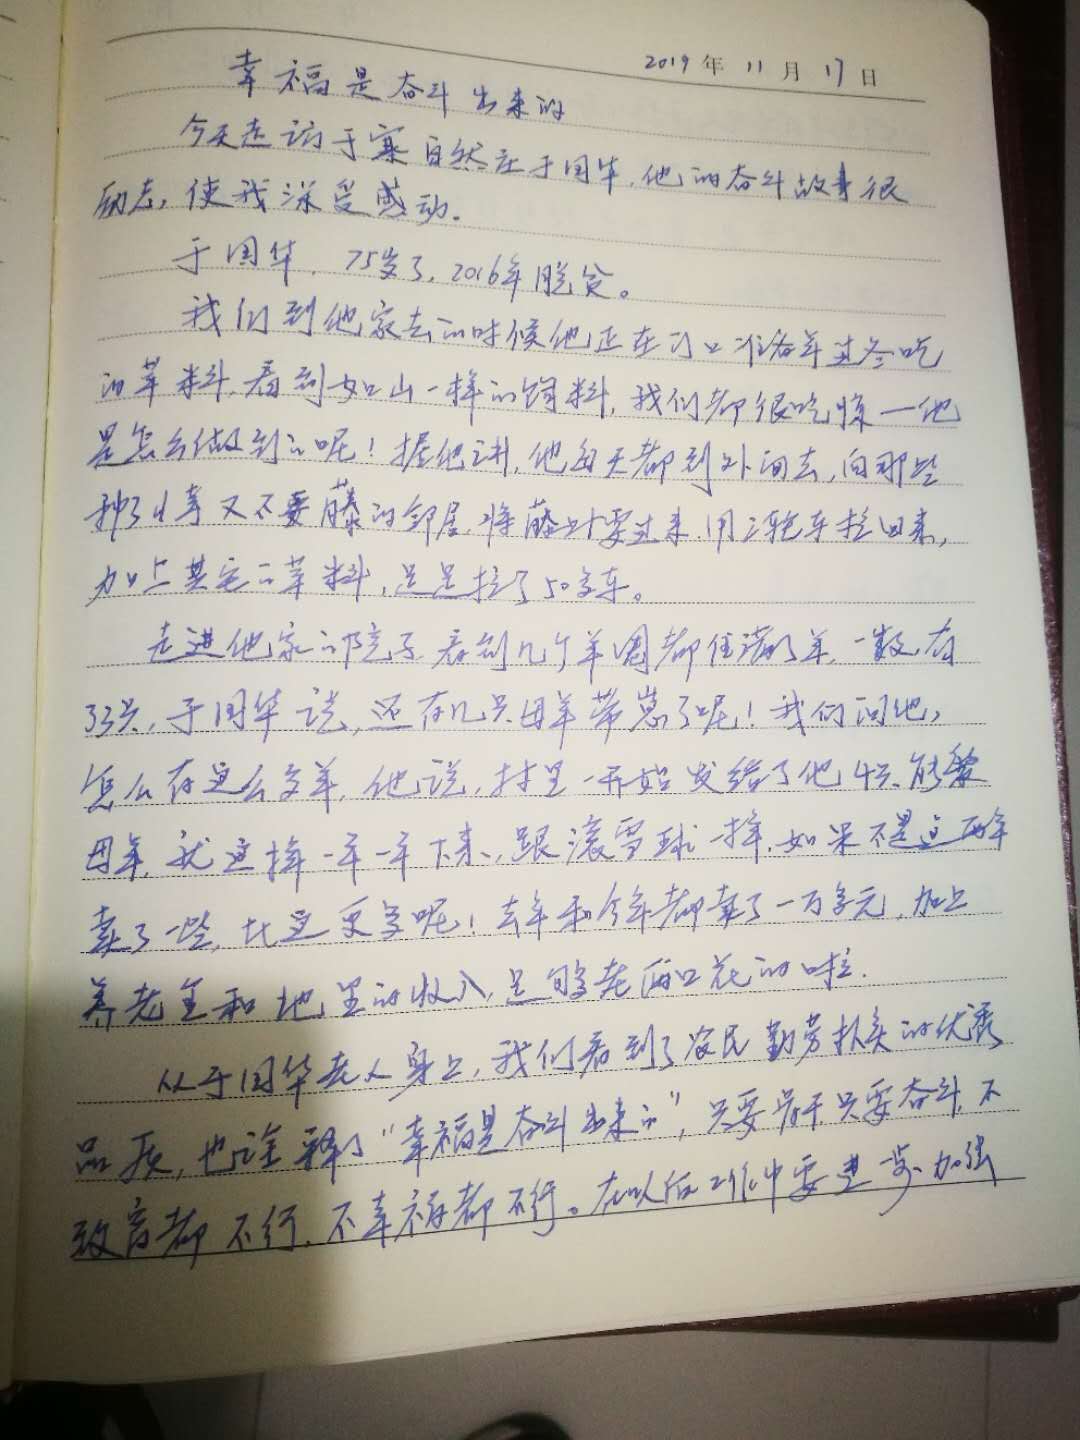 2019年11月17日
幸福是奋斗出来的
今天走访于寨自然庄于国华,他的奋斗故事很
励志,使我深受感动。
于国华,75岁了,2016年脱贫。
我们到他家去的时候他正在门口准备羊过冬吃
的草料,看到如山一样的饲料,我们都很吃惊—他
是怎么做到的呢!据他讲,他每天都到外面去,向那些
种了山芋又不要藤的邻居,将藤叶要过来,用三轮车拉回来,
加上其它的草料,足足拉了50多车。
走进他家的院子,看到几个羊圈都住满了羊,一数,有
33只,于国华说,还有几只母羊带崽了呢!我们问他,
怎么有这么多羊,他说,村里一开始发给了他4只能繁
母羊,就这样一年一年下来,跟滚雪球一样,如果不是这两年
卖了一些,比这更多呢!去年和今年都卖了一万多元,加上
养老金和地里的收入,足够老两口花的啦.
从于国华老人身上,我们看到了农民勤劳朴实的优秀
品质,也诠释了“幸福是奋斗出来的”,只要肯干,只要奋斗,不
致富都不行,不幸福都不行。在以后工作中要进一步加强